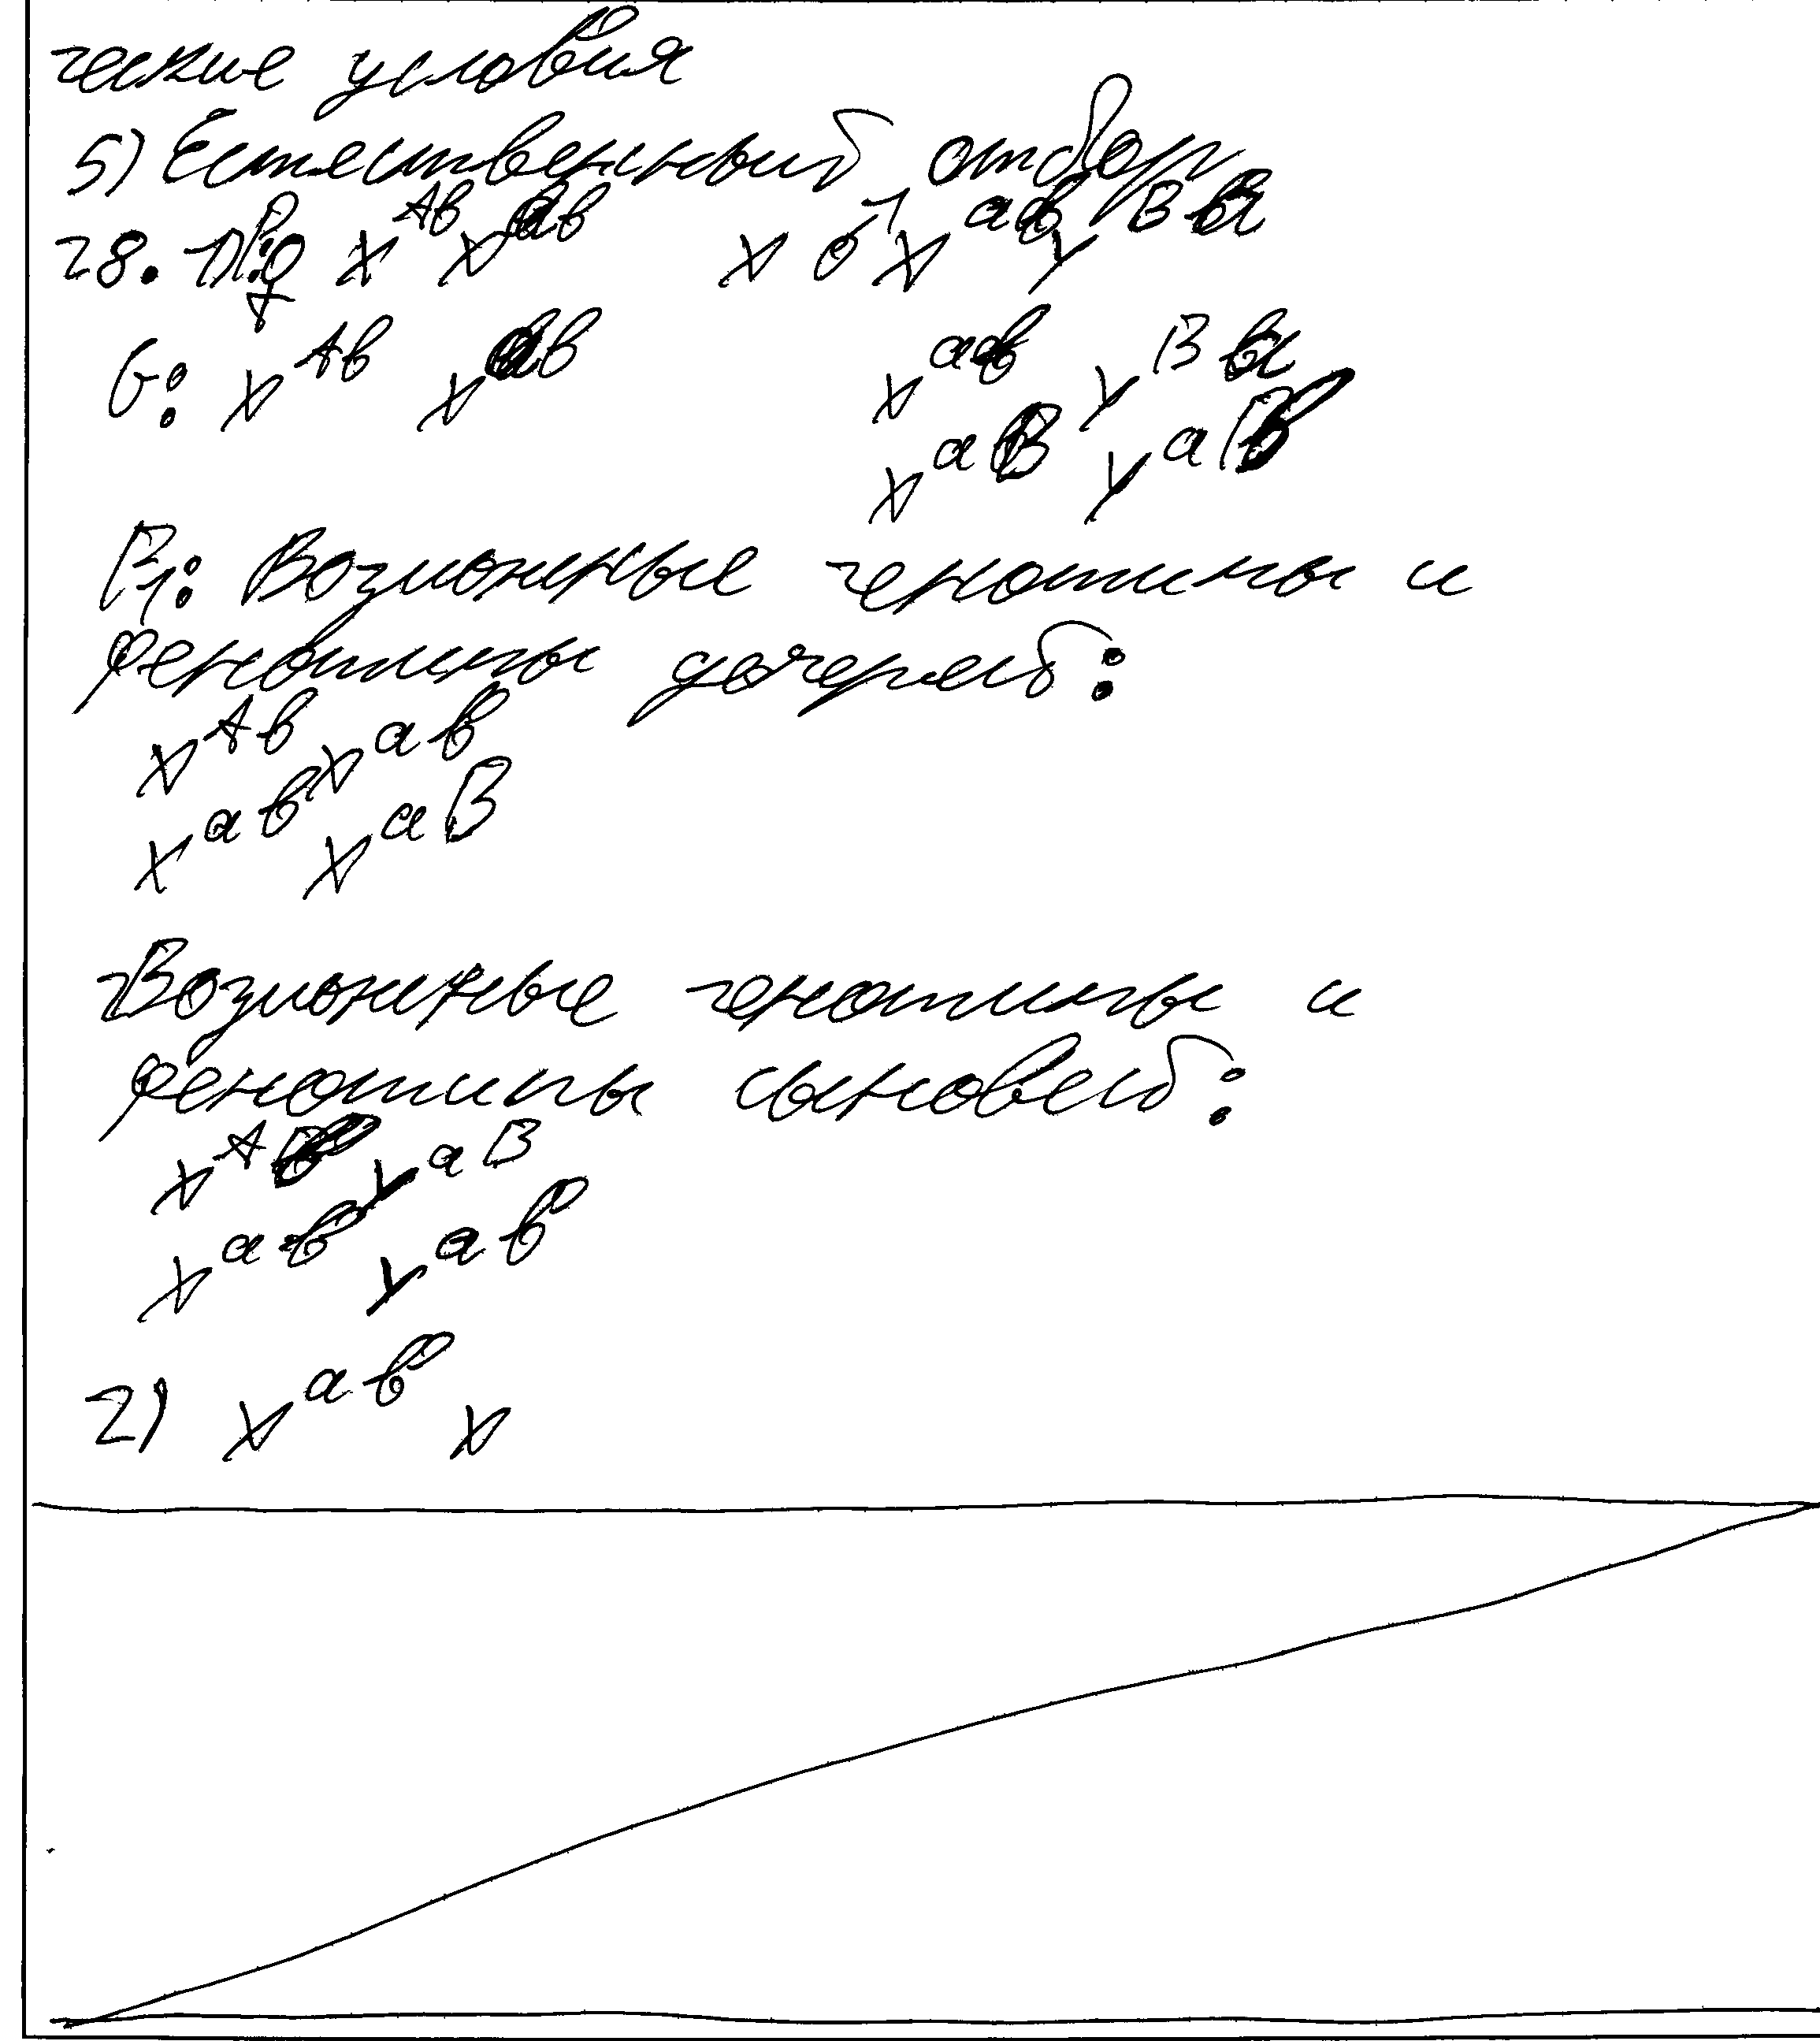 ческие условия
5) Естественный отбор
28. 1) P: ♀ X^Ab X^ab x ♂ X^aB Y
G: X^Ab X^ab X^ab Y^B
X^aB Y^aB
F1: Возможные генотипы и
фенотипы дочерей:
X^Ab X^ab
X^ab X^aB
Возможные генотипы и
фенотипы сыновей:
X^Ab Y^aB
X^ab Y^ab
2) X^ab X